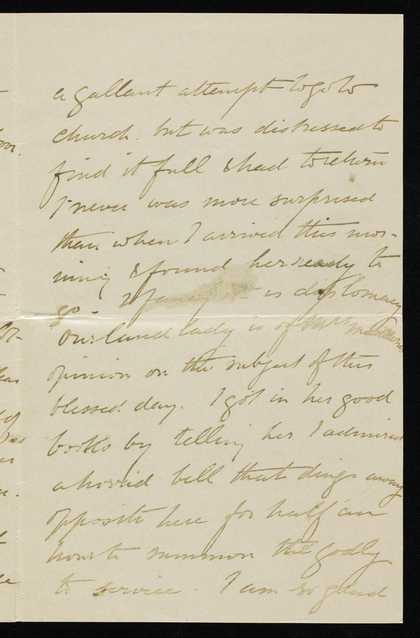 a gallant attempt to go to
church. but was distressed to
find it full & had to return
I never was more surprised
than when I arrived this mor-
ning & found her ready to
go. I fancy it is diplomacy
Our landlady is of
opinion on the subject of this
blessed day. I got in her good
books by telling her I admired
a horrid bell that dings away
opposite here for half an
hour to summon the godly
to service. I am so glad